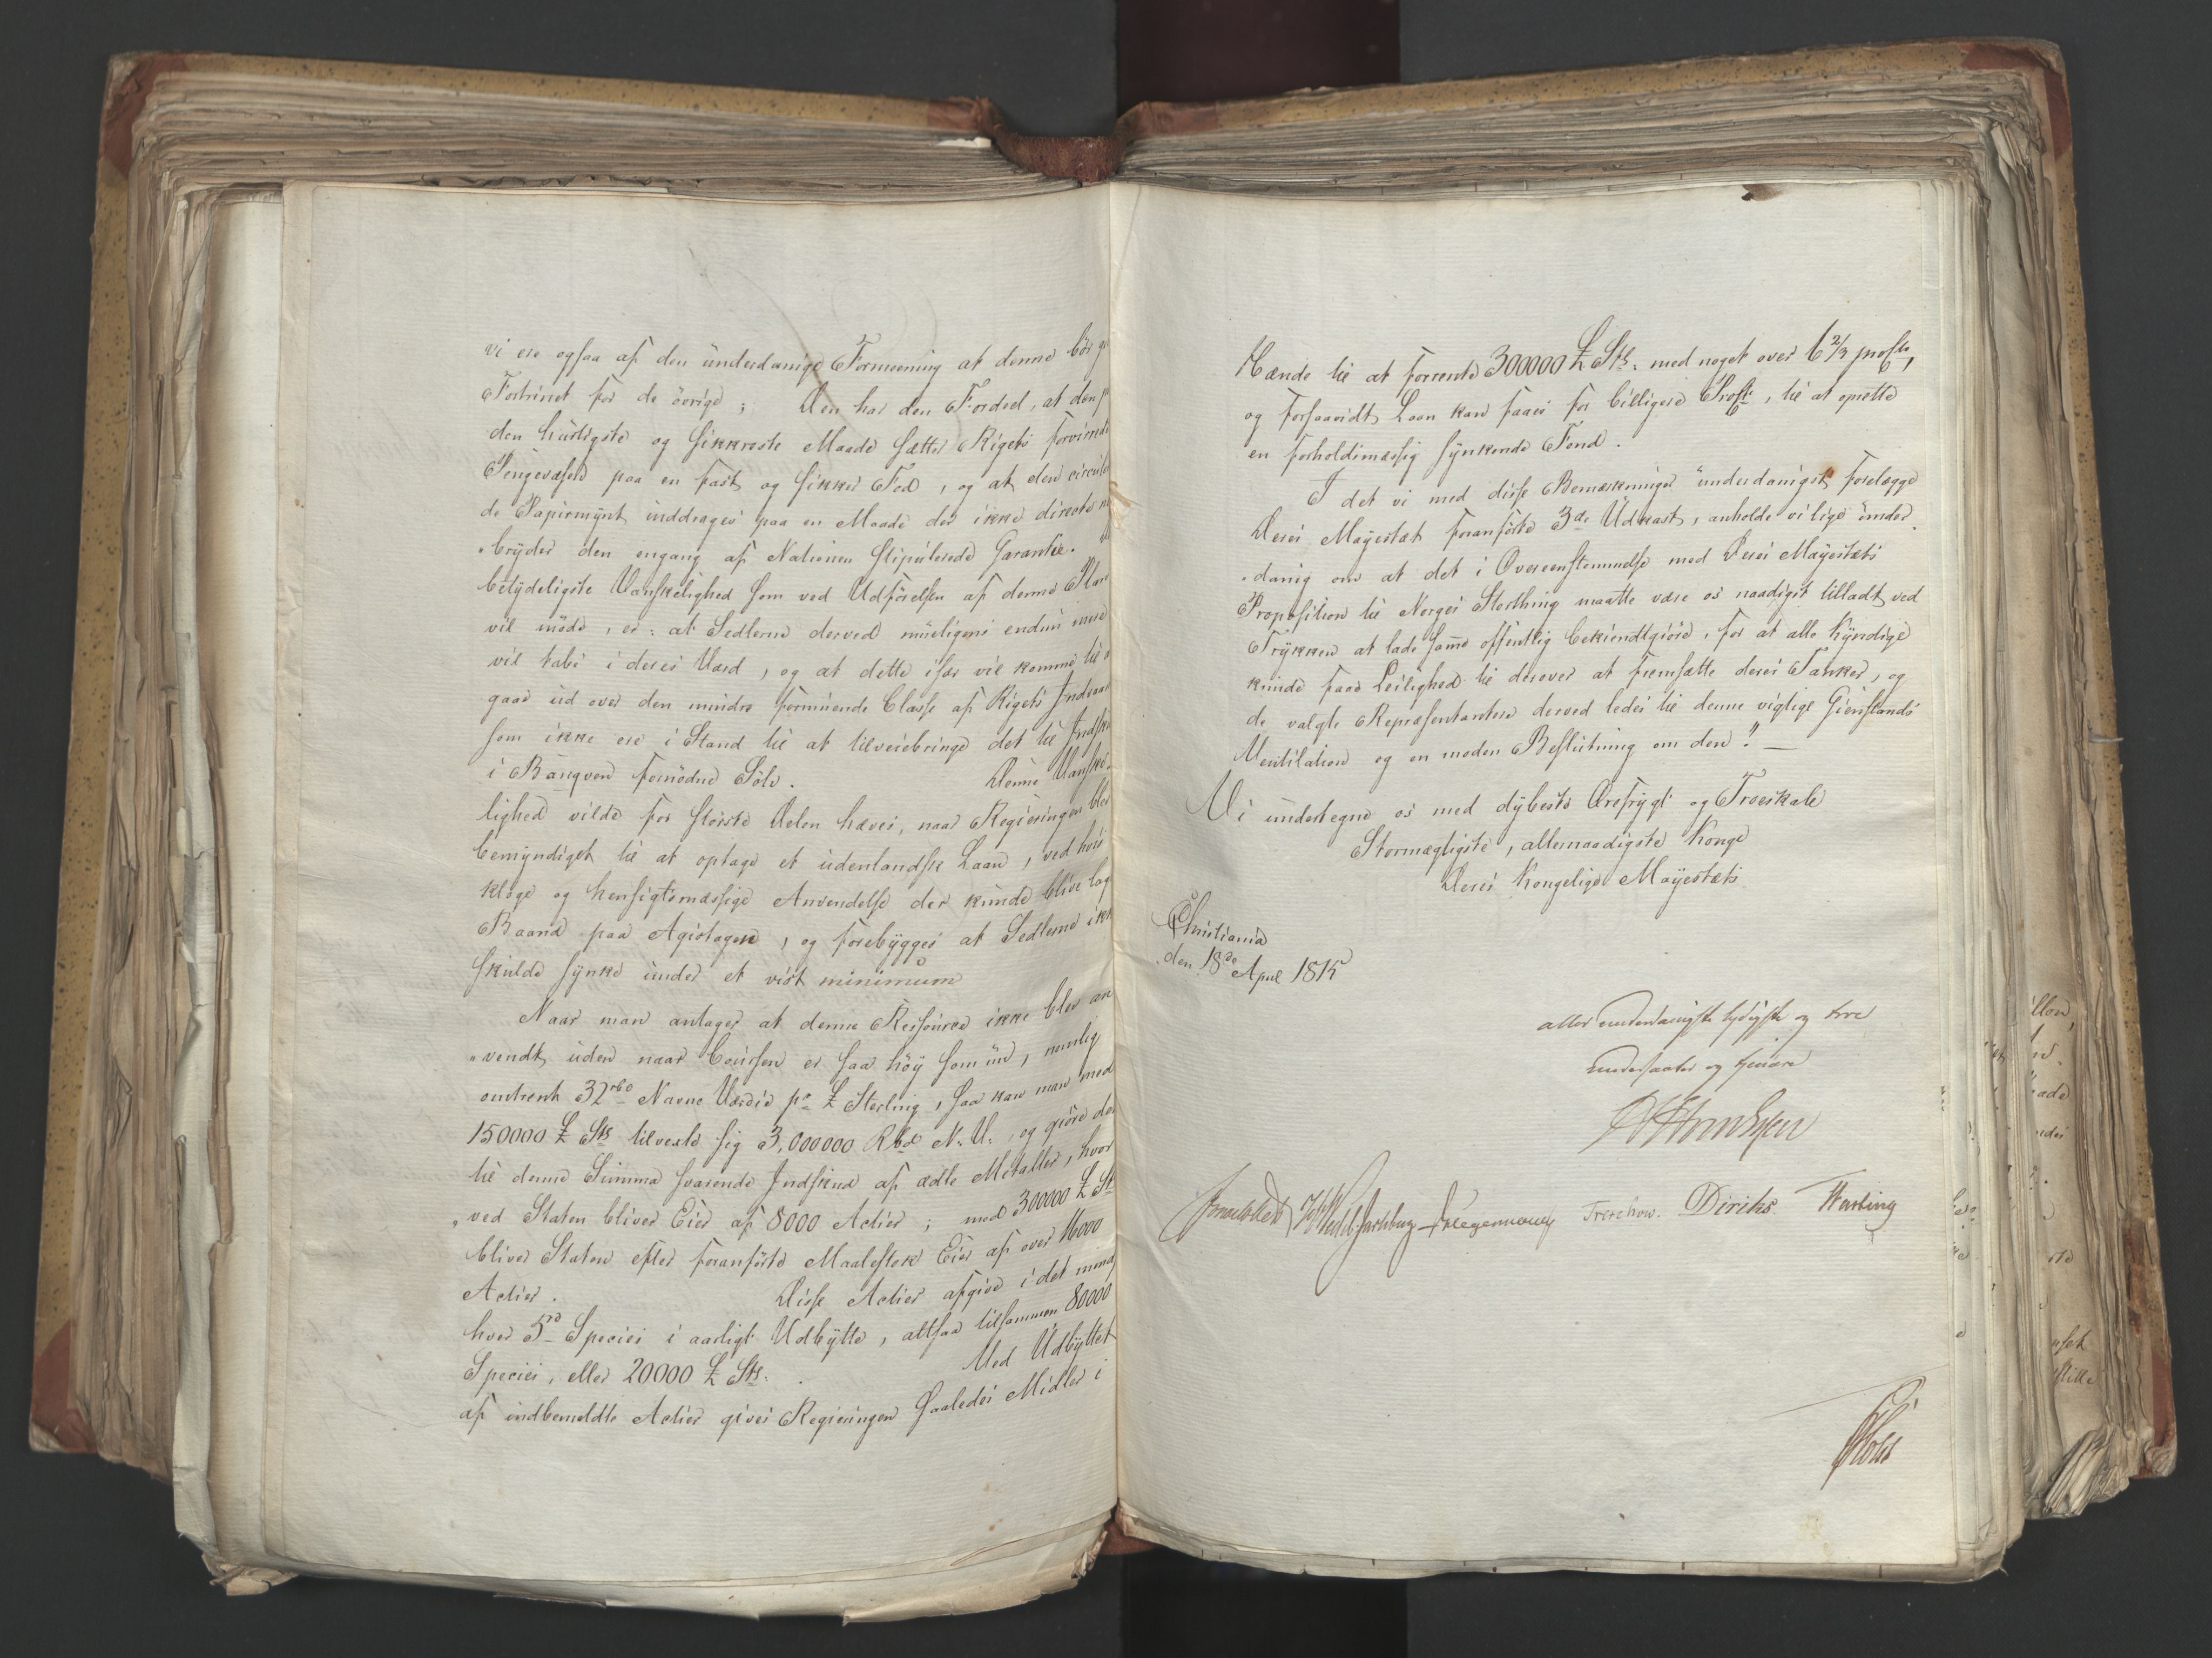 vi ere ogsaa af den underdanige Formeening at denne bör
Fortrinet for de övrige; Den har den Fordeel, at den
den hurtigste og sikkreste Maade sætter Rigets forvirrede
Pengevæsen paa en fast og sikker Fod, og at den circule
de Papirmynt inddrages paa en Maade der ikke directe
bryder den engang af Nationen stipulerede Garantie.
betydeligste Vanskelighed som ved Udförelsen af denne Plan
vil möde, er: at Sedlerne derved mueligens endnu mere
vil tabe i deres Værd, og at dette især vil komme til
gaae ud over den mindre formuende Classe af Rigets Indvaa
som ikke ere i Stand til at tilveiebringe det til Indsku
i Banqven fornödne Sölv. Denne Vanske-
lighed vilde for störste Delen hæves, naar Regieringen blev
bemyndiget til at optage et udenlandsk Laan, ved hvis
kloge og hensigtsmæssige Anvendelse der kunde blive lag
Baand paa Agiotagen, og forebygges at Sedlerne ikk
skulde synke under et vist minimum
Naar man antager at denne Ressource ikke blev an
„vendt uden naar Coursen er saa höy som nu, nemlig
omtrent 32 rbd Navne Værdie pr £ Sterling, saa kan man med
150000 £ Stg tilvexle sig 3,000000 Rbd N: V:, og giöre det
til denne Summa svarende Indskud af ædle Metaller, hvor
„ved Staten bliver Eier af 8000 Actier; med 300000 £ St
bliver Staten efter foranförte Maalestok Eier af over 16000
Actier. Disse Actier afgive i det mind
hver 5 rd Species i aarligt Udbytte, altsaa tilsammen 80000
Species, eller 20000 £ Stg. Ved Udbyttet
af indbemeldte Actier gives Regieringen saaledes Midler i
Hænde til at forrente 300000 £ Stg: med noget over 6 2/3 proCto,
og forsaavidt Laan kan faaes for billigere ProCt, til at oprette
en forholdsmæssig synkende Fond.
I det vi med disse Bemærkninger underdanigst forelægge
Deres Mayestæt foranförte 3de Udkast, anholde vi lige under
„danig om at det i Overeenstemmelse med Deres Mayestæts
Proposition til Norges Storthing maatte være os naadigst tilladt ved
Trykken at lade samme offentlig bekiendtgiöre, for at alle kyndige
kunde faae Leilighed til derover at fremsætte deres Tanker, og
de valgte Repræsentantere derved ledes til denne vigtige Gienstands
Ventilation og en moden Beslutning om den." —
Vi undertegne os med dybeste Ærefrygt og Troeskab
Stormægtigste, allernaadigste Konge
Deres Kongelige Mayestæts
Christiania
den 18de April 1815
allerunderdanigste lydigste og troe
undersaatter og tienere
Sommerhielm Wedel Jarlsberg Hegermann Treschow. Diriks Hasting
Holst